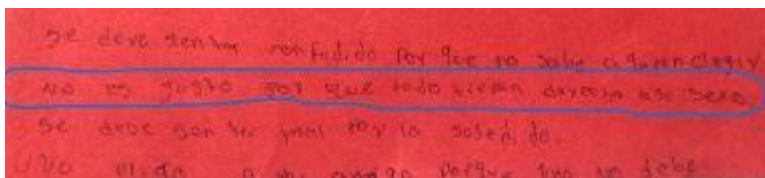 se deve sentir confudido por que no sabe a quien elegir
NO es justo por que todo tienen derecho ase sexo
se debe sentir mal por lo sosedido.
a mi amigo porque uno no debe